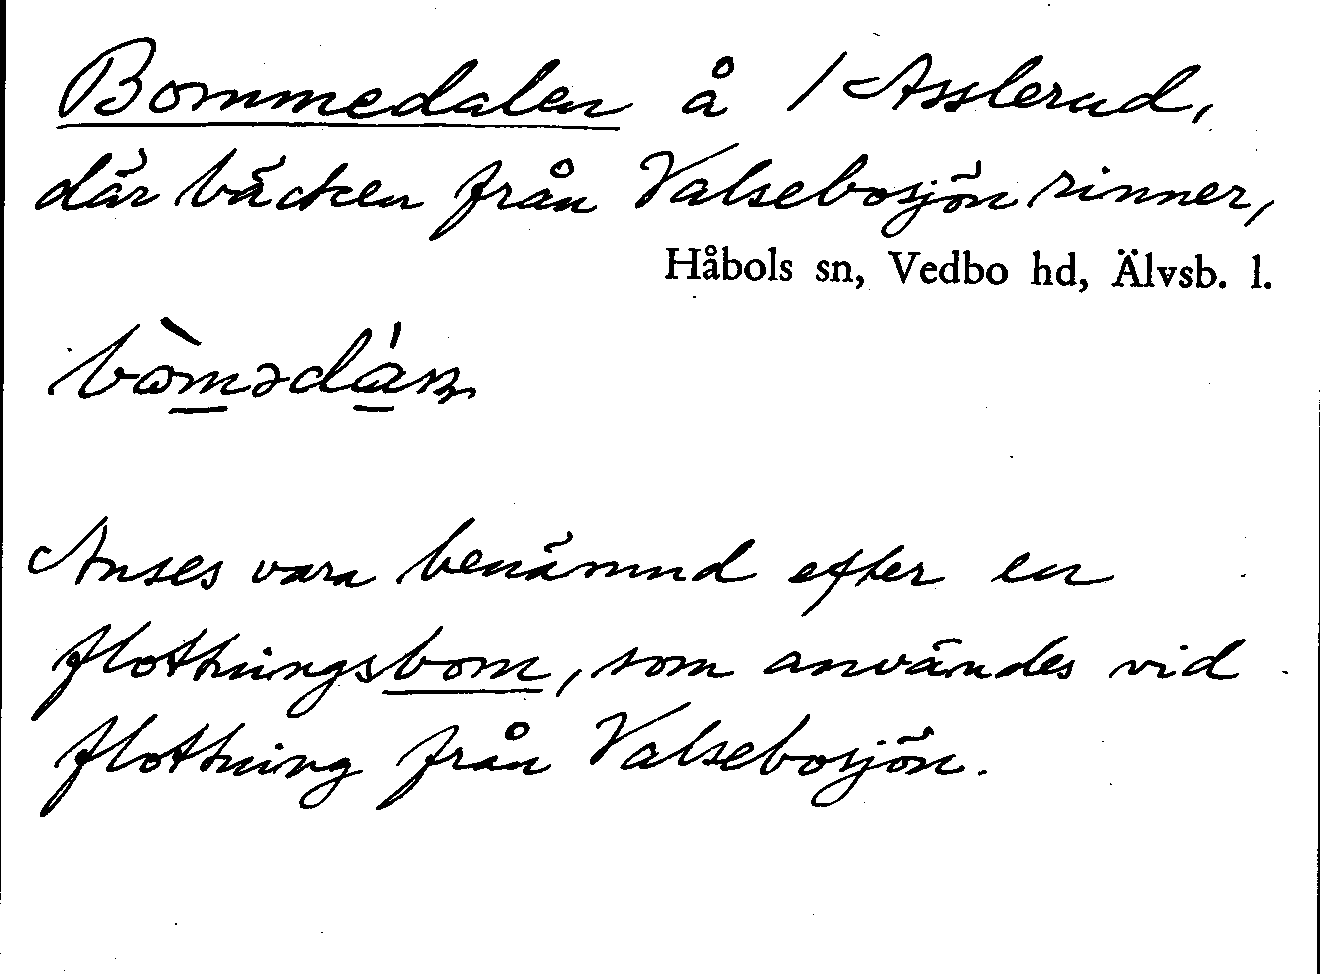 Bommedalen å 1 Asslerud,
där bäcken från Valsebosjön rinner,
Håbols sn, Vedbo hd, Älvsb. l.
Anses vara benämnd efter en
flottningsbom, som användes vid
flottning från Valsebosjön.